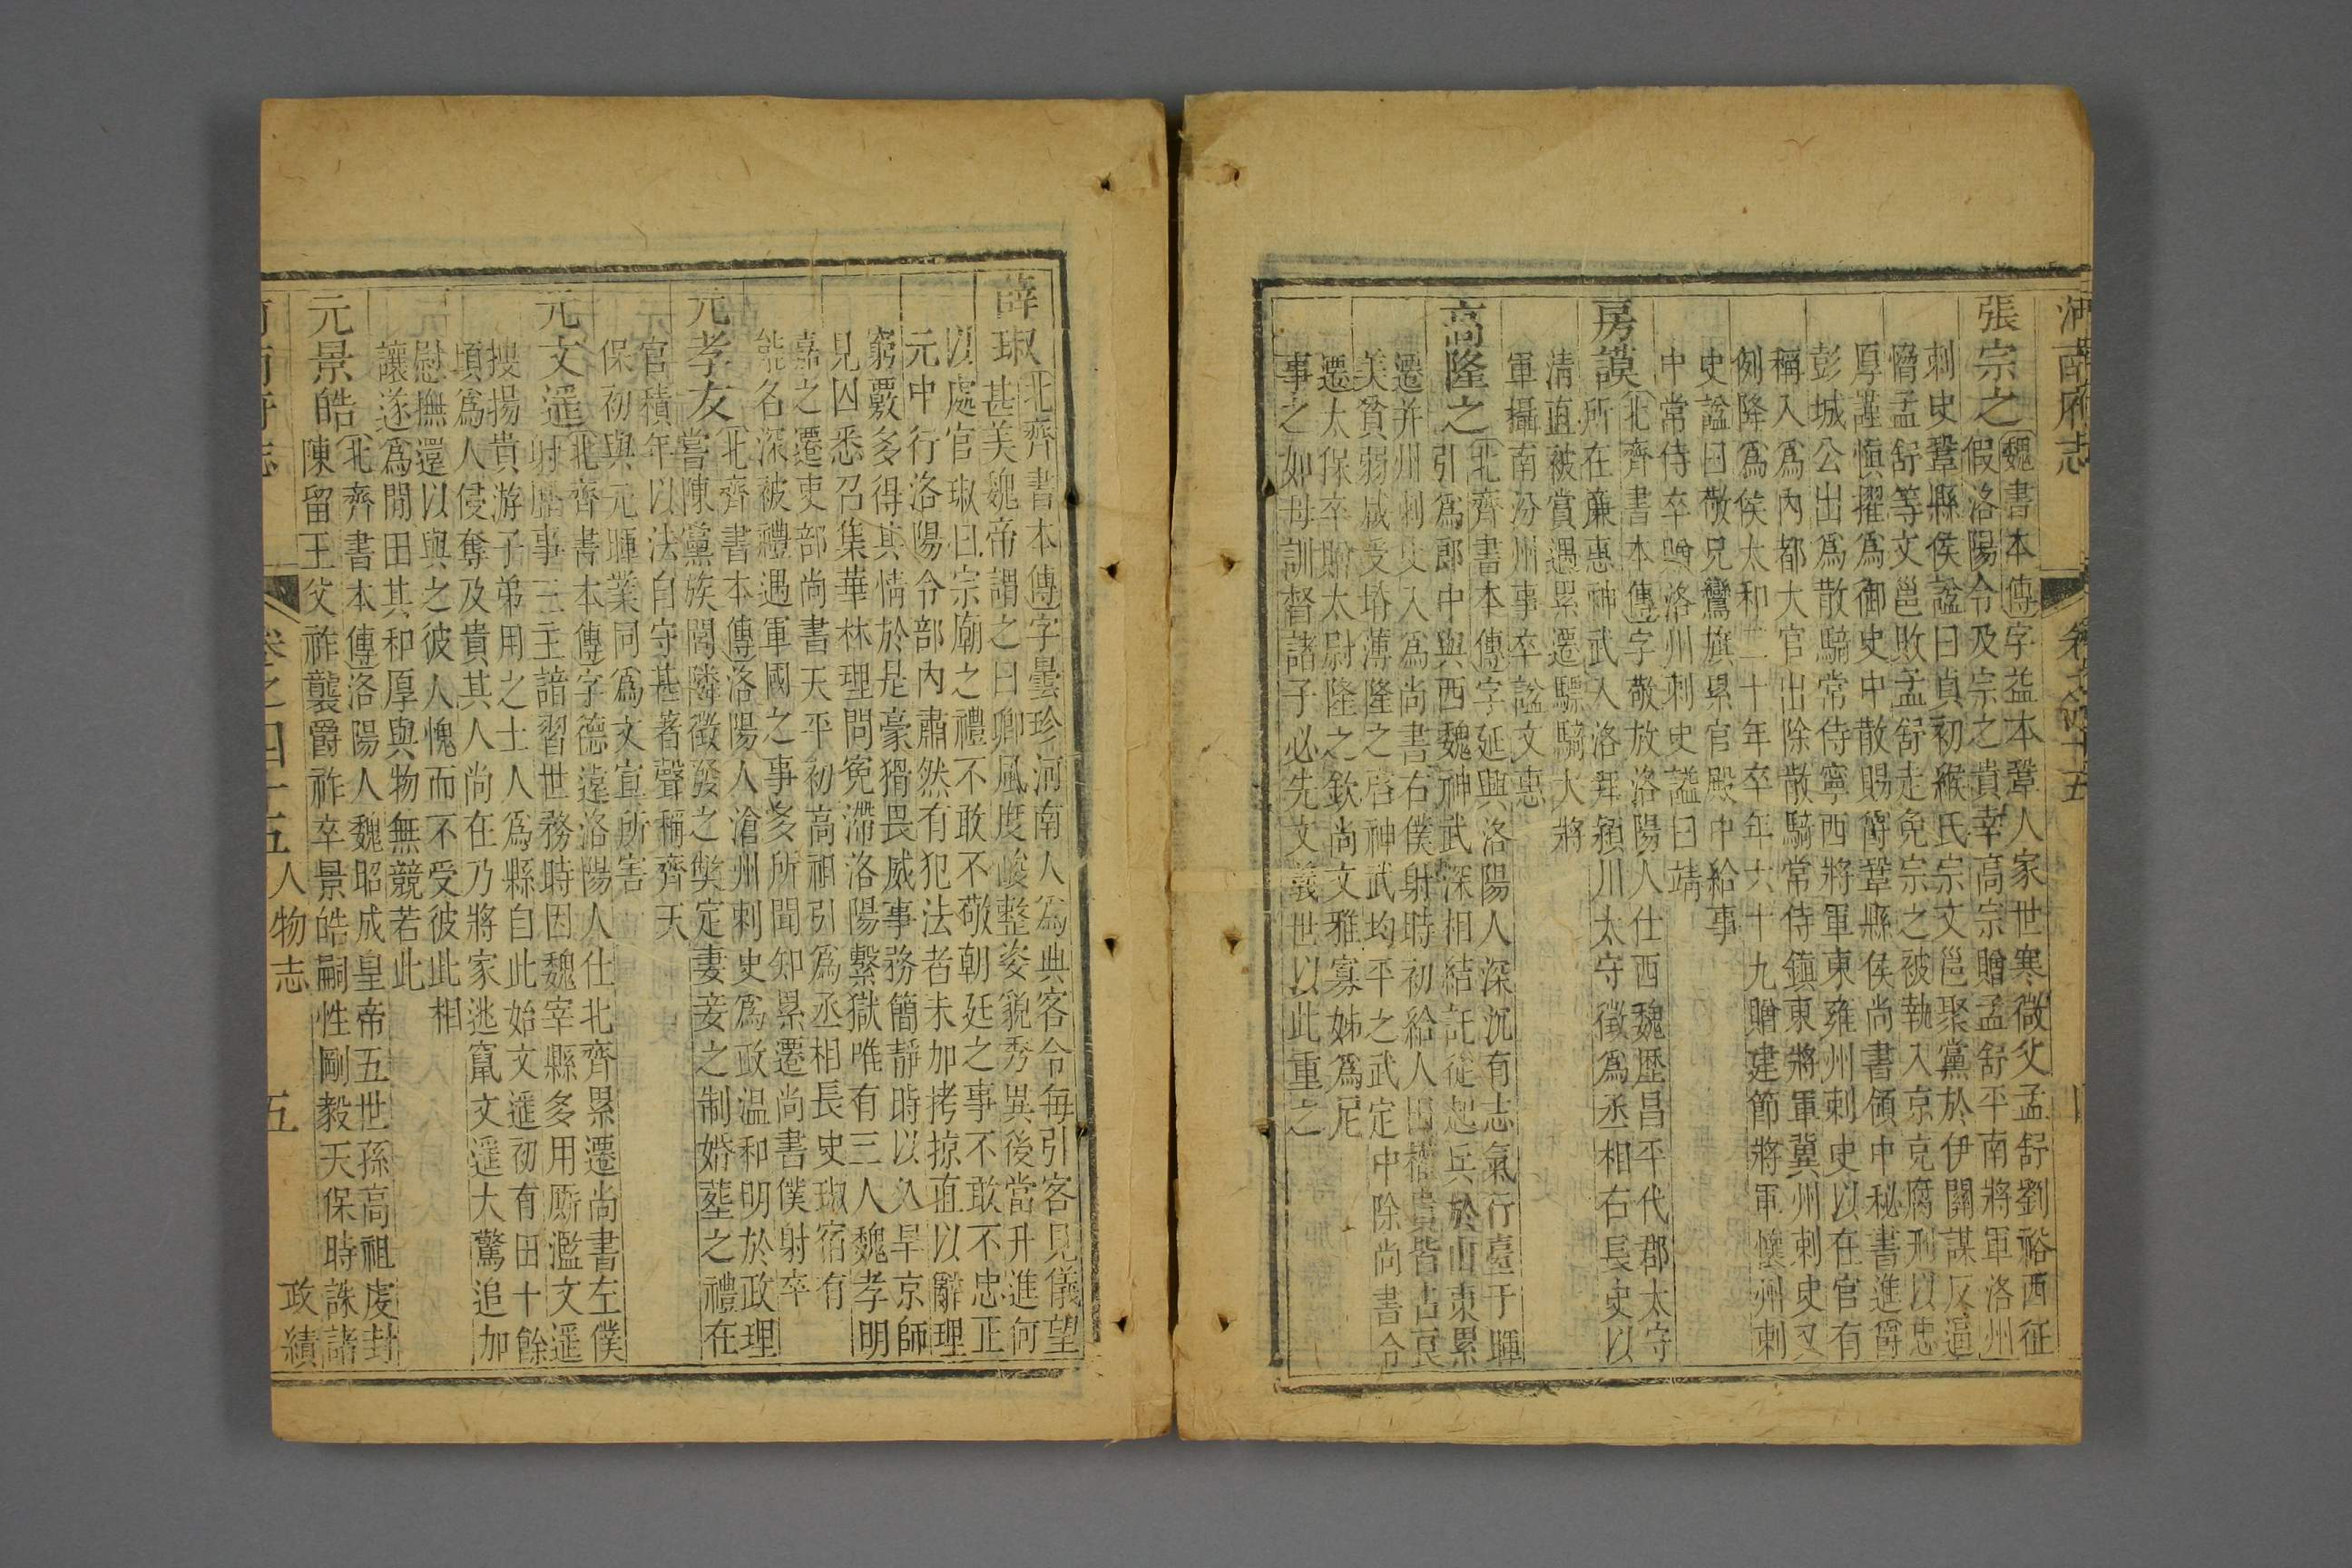 河南府志 卷之四十五
張宗之魏書本傳字益本鞏人家世寒微父孟舒劉裕西征
假洛陽令及宗之貴幸高宗贈孟舒平南將軍洛州
刺史鞏縣侯諡曰貞初緱氏宗文邕聚黨於伊闕謀反逼
脅孟舒等文邕敗孟舒走免宗之被執入京充腐刑以忠
厚謹慎擢為御史中散賜爵鞏縣侯尚書領中秘書進爵
彭城公出為散騎常侍寧西將軍東雍州刺史以在官有
稱入為內都大官出除散騎常侍鎮東將軍冀州刺史又
例降為侯太和二十年卒年六十九贈建節將軍懷州刺
史諡曰敬兄鸞旗累官殿中給事
中常侍卒贈洛州刺史謚曰靖
房謨北齊書本傳字敬放洛陽人仕西魏歷昌平代郡太守
所在廉惠神武入洛拜潁川太守徵為丞相右長史以
清直被賞遇累遷驃騎大將
軍攝南汾州事卒諡文惠
高隆之北齊書本傳字延興洛陽人深沉有志氣行臺于暉
引為郎中與西魏神武深相結託從起兵於山東累
遷并州刺史入為尚書右僕射時初給人田權貴皆占良
美貧弱咸受瘠薄隆之啓神武均平之武定中除尚書令
遷太保卒贈太尉隆之欽尚文雅寡姊為尼
事之如母訓督諸子必先文義世以此重之
薛琡北齊書本傳字曇珍河南人為典客令每引客見儀望
甚美魏帝謂之曰卿風度峻整姿貌秀異後當升進何
以處官琡曰宗廟之禮不敢不敬朝廷之事不敢不忠正
元中行洛陽令部內肅然有犯法者未加拷掠直以辭理
窮覈多得其情於是豪猾畏威事務簡靜時以久旱京師
見囚悉召集華林理問冤滯洛陽繫獄唯有三人魏孝明
嘉之遷吏部尚書天平初高祖引為丞相長史琡宿有
能名深被禮遇軍國之事多所聞知累遷尚書僕射卒
元孝友北齊書本傳洛陽人滄州刺史為政溫和明於政理
嘗陳黨族閭隣徵發之獘定妻妾之制婚塟之禮在
官積年以法自守甚著聲稱齊天
保初與元暉業同為文宣所害
元文遥北齊書本傳字德遠洛陽人仕北齊累遷尚書左僕
射歷事三主諳習世務時因魏宰縣多用厮濫文遥
搜揚貴游子弟用之士人為縣自此始文遥初有田十餘
頃為人侵奪及貴其人尚在乃將家逃竄文遥大驚追加
慰撫還以與之彼人愧而不受彼此相
讓遂為閒田其和厚與物無競若此
元景皓北齊書本傳洛陽人魏昭成皇帝五世孫高祖虔封
陳留王父祚襲爵祚卒景皓嗣性剛毅天保時誅諸
卷之四十五人物志 五 政績